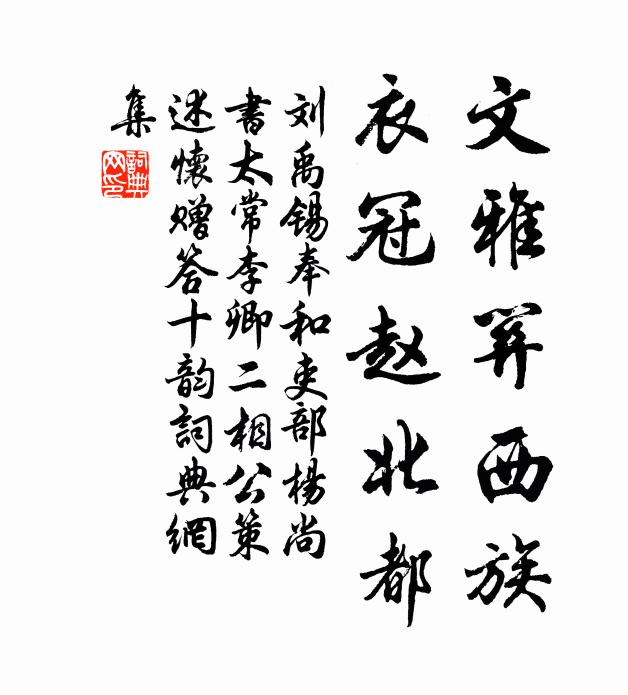 文雅关西族
衣冠赵北都
刘禹锡奉和吏部楊尚
書太常李卿二相公策
述懷贈答十韵詞典網
集
詞典
网印